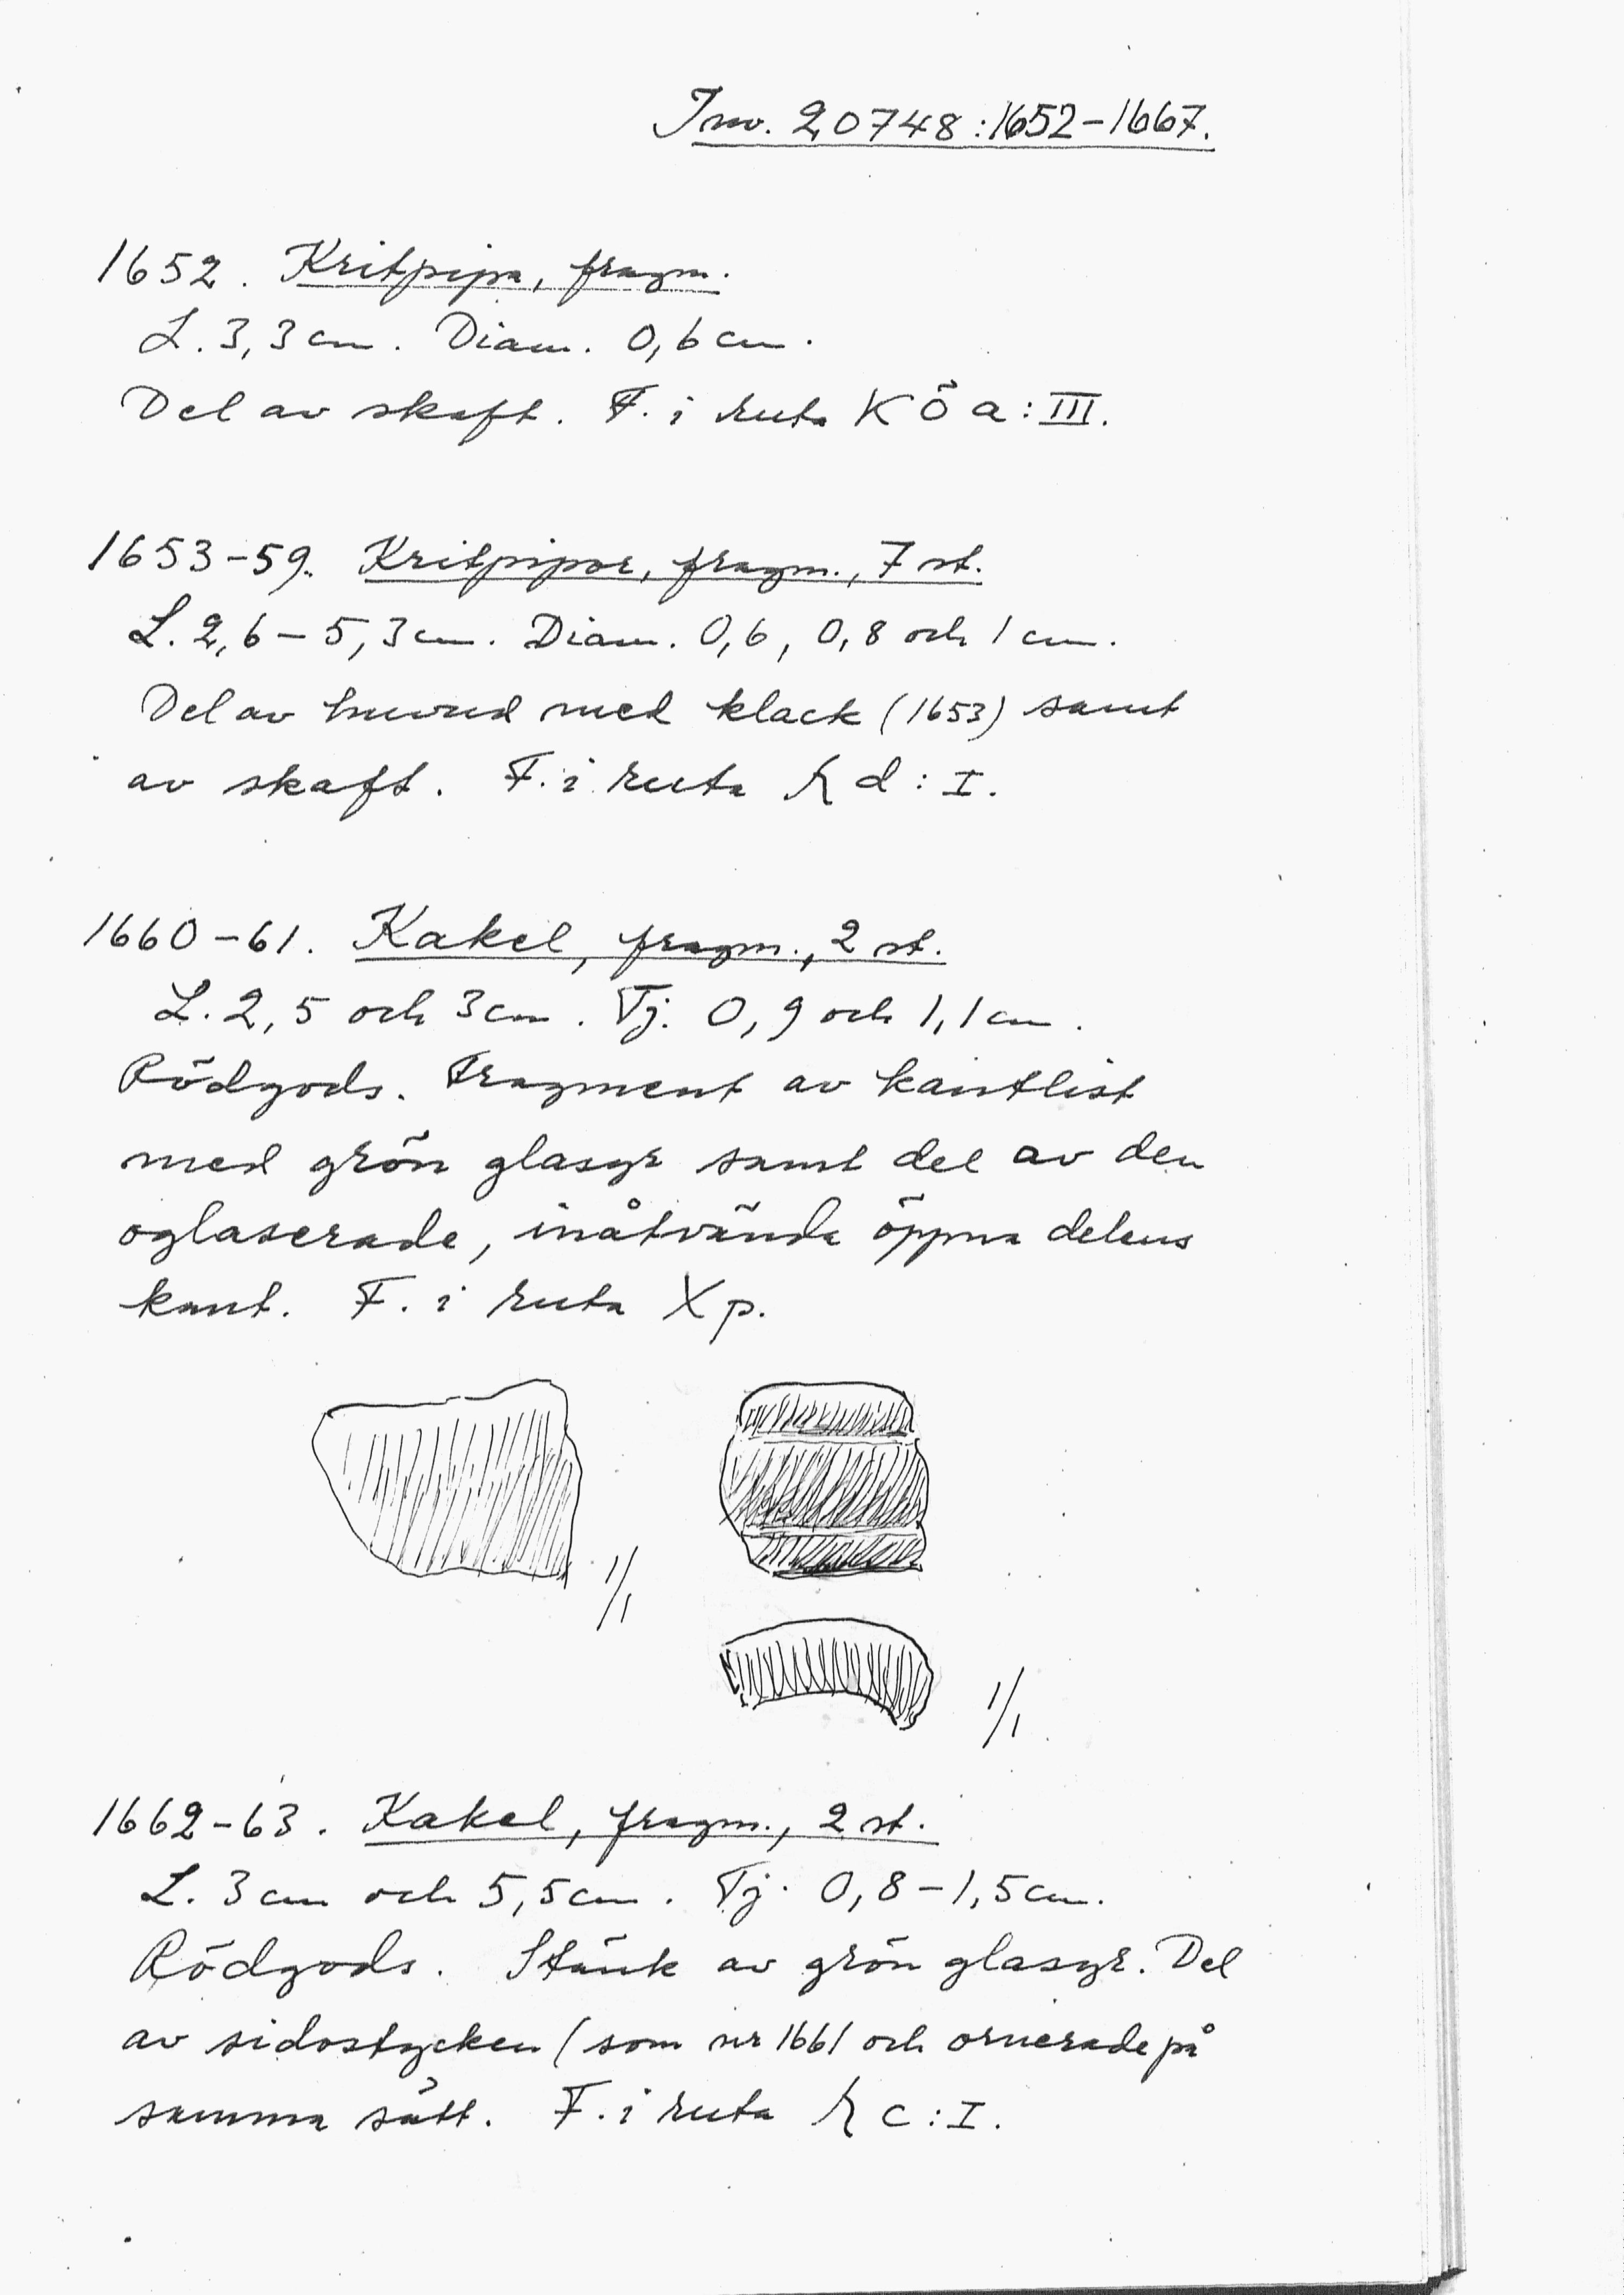 Inv. 20748:1652-1667.
1652. Kritpipa, fragm.
L. 3,3 cm. Diam. 0,6 cm.
Del av skaft. F. i ruta K Ö a : III.
1653-59. Kritpipor, fragm., 7 st.
L. 2,6 - 5,3 cm. Diam. 0,6, 0,8 och 1 cm.
Del av huvud med klack (1653) samt
av skaft. F. i ruta R d : I.
1660-61. Kakel, fragm., 2 st.
L. 2,5 och 3 cm. Tj. 0,9 och 1,1 cm.
Rödgods. Fragment av kantlist
med grön glasyr samt del av den
oglaserade, inåtvända öppna delens
kant. F. i ruta X p.
1/1
1/1
1662-63. Kakel, fragm., 2 st.
L. 3 cm och 5,5 cm. Tj. 0,8 - 1,5 cm.
Rödgods. Stänk av grön glasyr. Del
av sidostycken (som nr 1661 och ornerade på
samma sätt. F. i ruta R c : I.